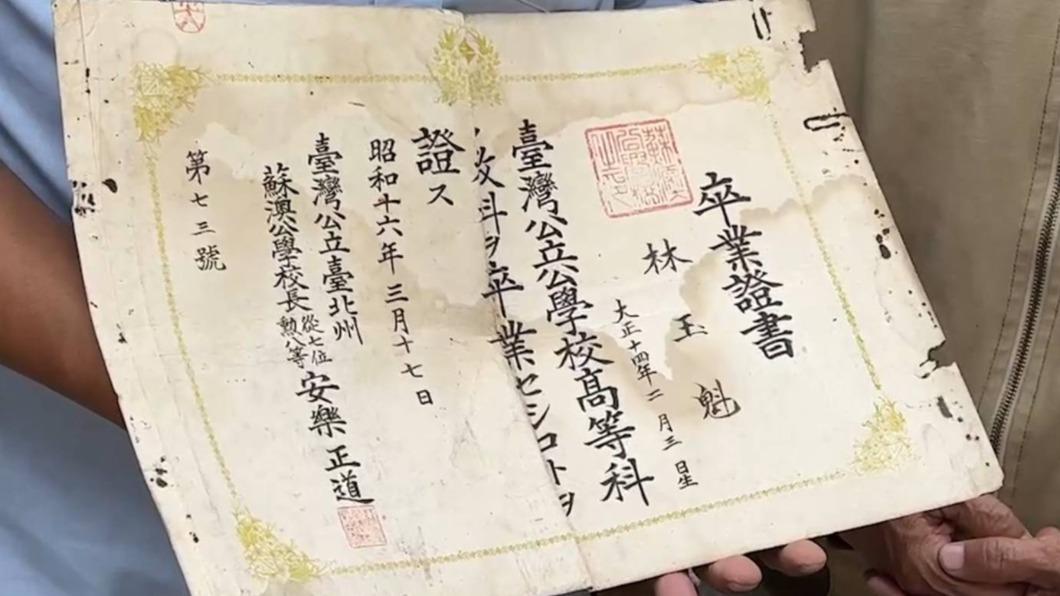 卒業證書
林玉魁
大正十四年二月三日生
臺灣公立公學校高等科
ヲ卒業セシコトヲ
證ス
昭和十六年三月十七日
臺灣公立臺北州
蘇澳公學校長從七位勲八等安樂正道
第七三號